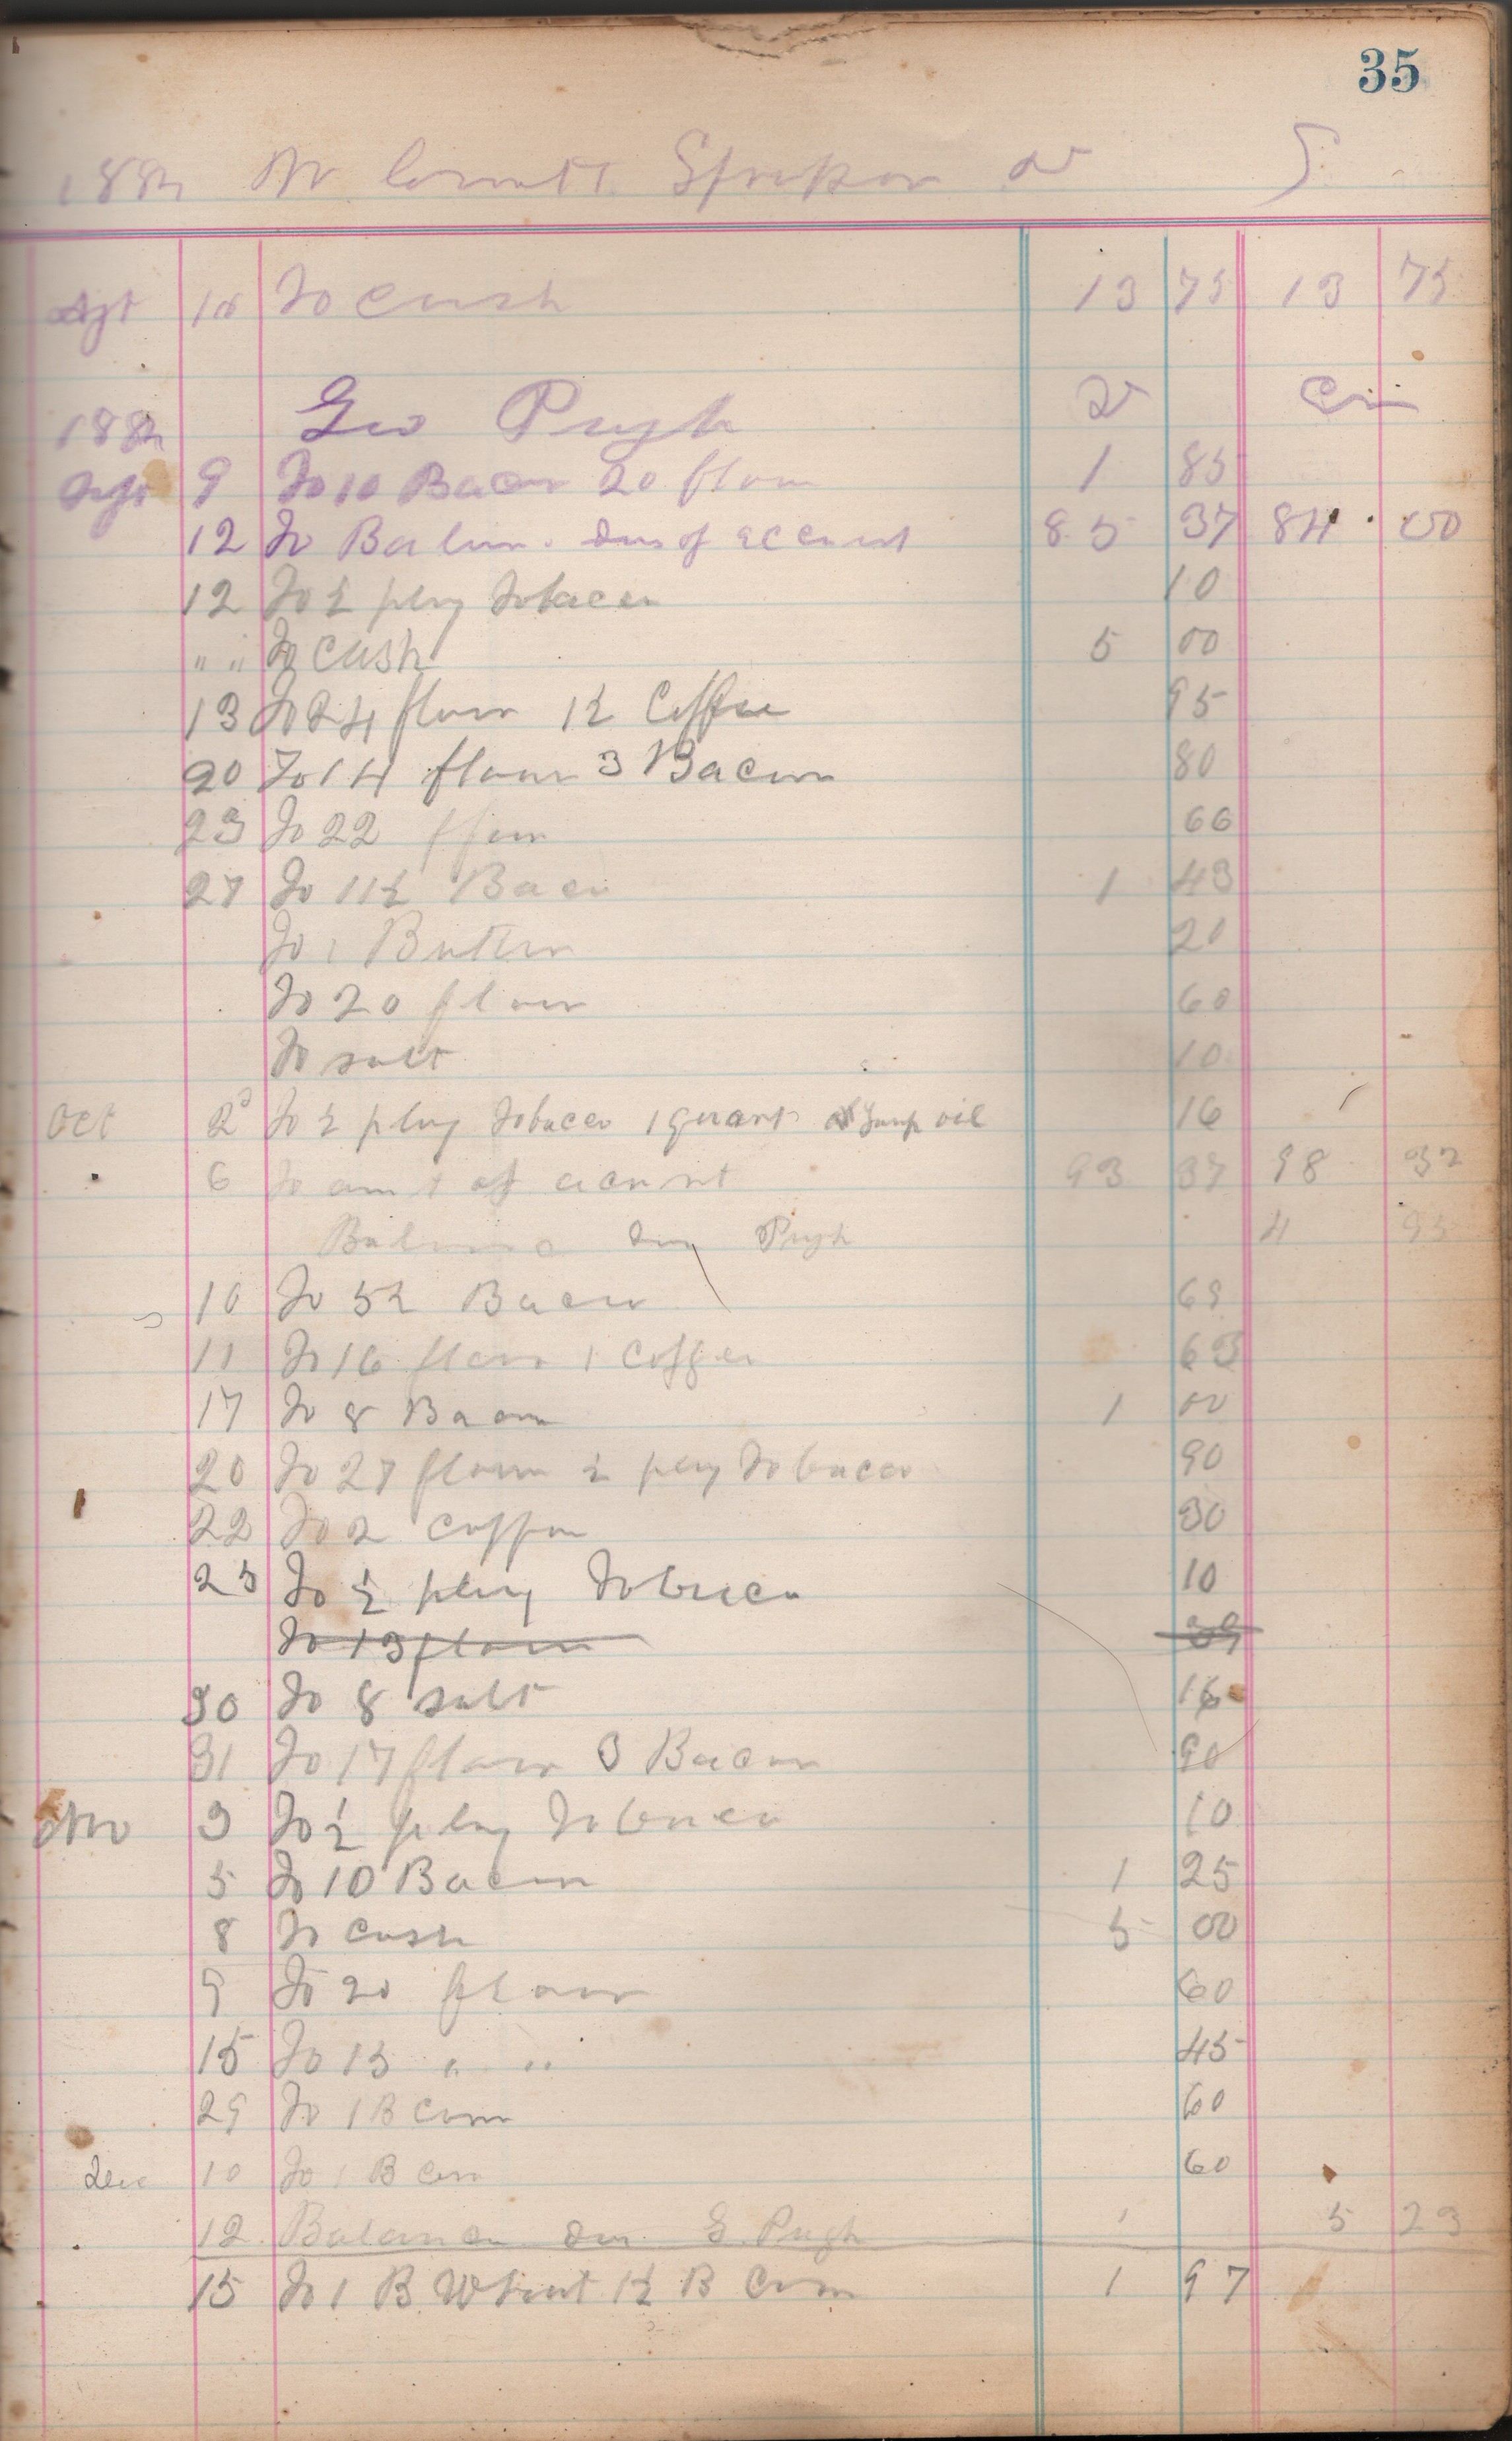 35
188
Sept To Cash 13 75 13 75
188 Geo Pugh Dr Cr
Sept 9 To 10 Bacon 20 flour 1 85
12 To Balan. due of account 85 37 84 00
12 To ½ plug Tobacco 10
" " To Cash 5 00
13 To 24 flour 1½ Coffee 95
20 To 14 flour 3 Bacon 80
23 To 22 flour 66
27 To 11½ Bacon 1 43
To 1 Butter 20
To 20 flour 60
To salt 10
Oct 2 To ½ plug Tobacco 1 quart of Lamp oil 16
6 To amt of account 93 37 98 32
Balance due Pugh 4 95
10 To 5½ Bacon 69
11 To 16 flour 1 Coffee 63
17 To 8 Bacon 1 00
20 To 27 flour ½ plug Tobacco 90
22 To 2 Coffee 30
23 To ½ plug Tobacco 10
To 13 flour 39
30 To 8 salt 16
31 To 17 flour 3 Bacon 90
Nov 3 To ½ plug Tobacco 10
5 To 10 Bacon 1 25
8 To Cash 5 00
9 To 20 flour 60
15 To 15 " " 45
29 To 1 B Corn 60
Dec 10 To 1 B Corn 60
12 Balance due G. Pugh 5 23
15 To 1 B Wheat 1½ B Corn 1 97